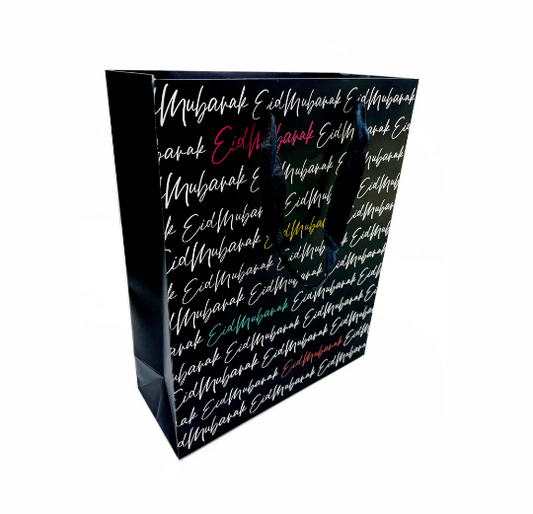 Mubarak EidMubarak EidMubarak
barak EidMubarak EidMubarak Eid
Mubarak EidMubarak EidMubarak
arak EidMubarak EidMubarak Eid
EidMubarak EidMubarak EidMubarak
ak EidMubarak EidMubarak EidMu
idMubarak EidMubarak EidMubarak
k EidMubarak EidMubarak EidMub
EidMubarak EidMubarak EidMubarak
ubarak EidMubarak EidMubarak
EidMubarak EidMubarak EidMubarak
ak EidMubarak EidMubarak
EidMubarak EidMubarak EidMubarak